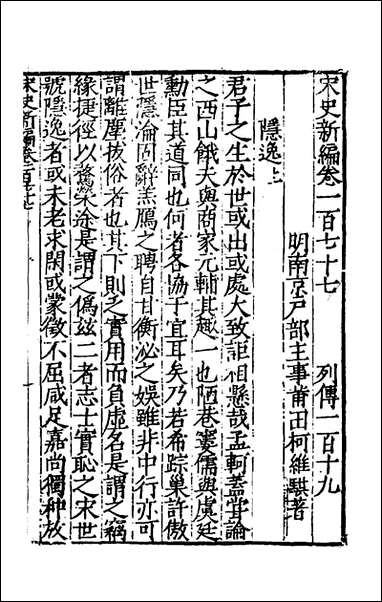 宋史新編卷一百七十七　　列傳一百十九
明南京戶部主事莆田柯維騏著
隱逸上
君子之生於世或出或處大致詎相懸哉孟軻蓋甞論
之西山餓夫與商家元輔其趣一也陋巷窶儒與虞廷
勳臣其道同也何者各協于宜耳矣乃若希踪巢許傲
世隱淪固辭羔鴈之聘自甘衡泌之娛雖非中行亦可
謂離塵拔俗者也其下則之實用而負虛名是謂之竊
緣捷徑以騖榮途是謂之偽玆二者志士實恥之宋世
號隱逸者或未老求閑或蒙徵不屈咸足嘉尚獨种放
宋史新編卷一百七十七